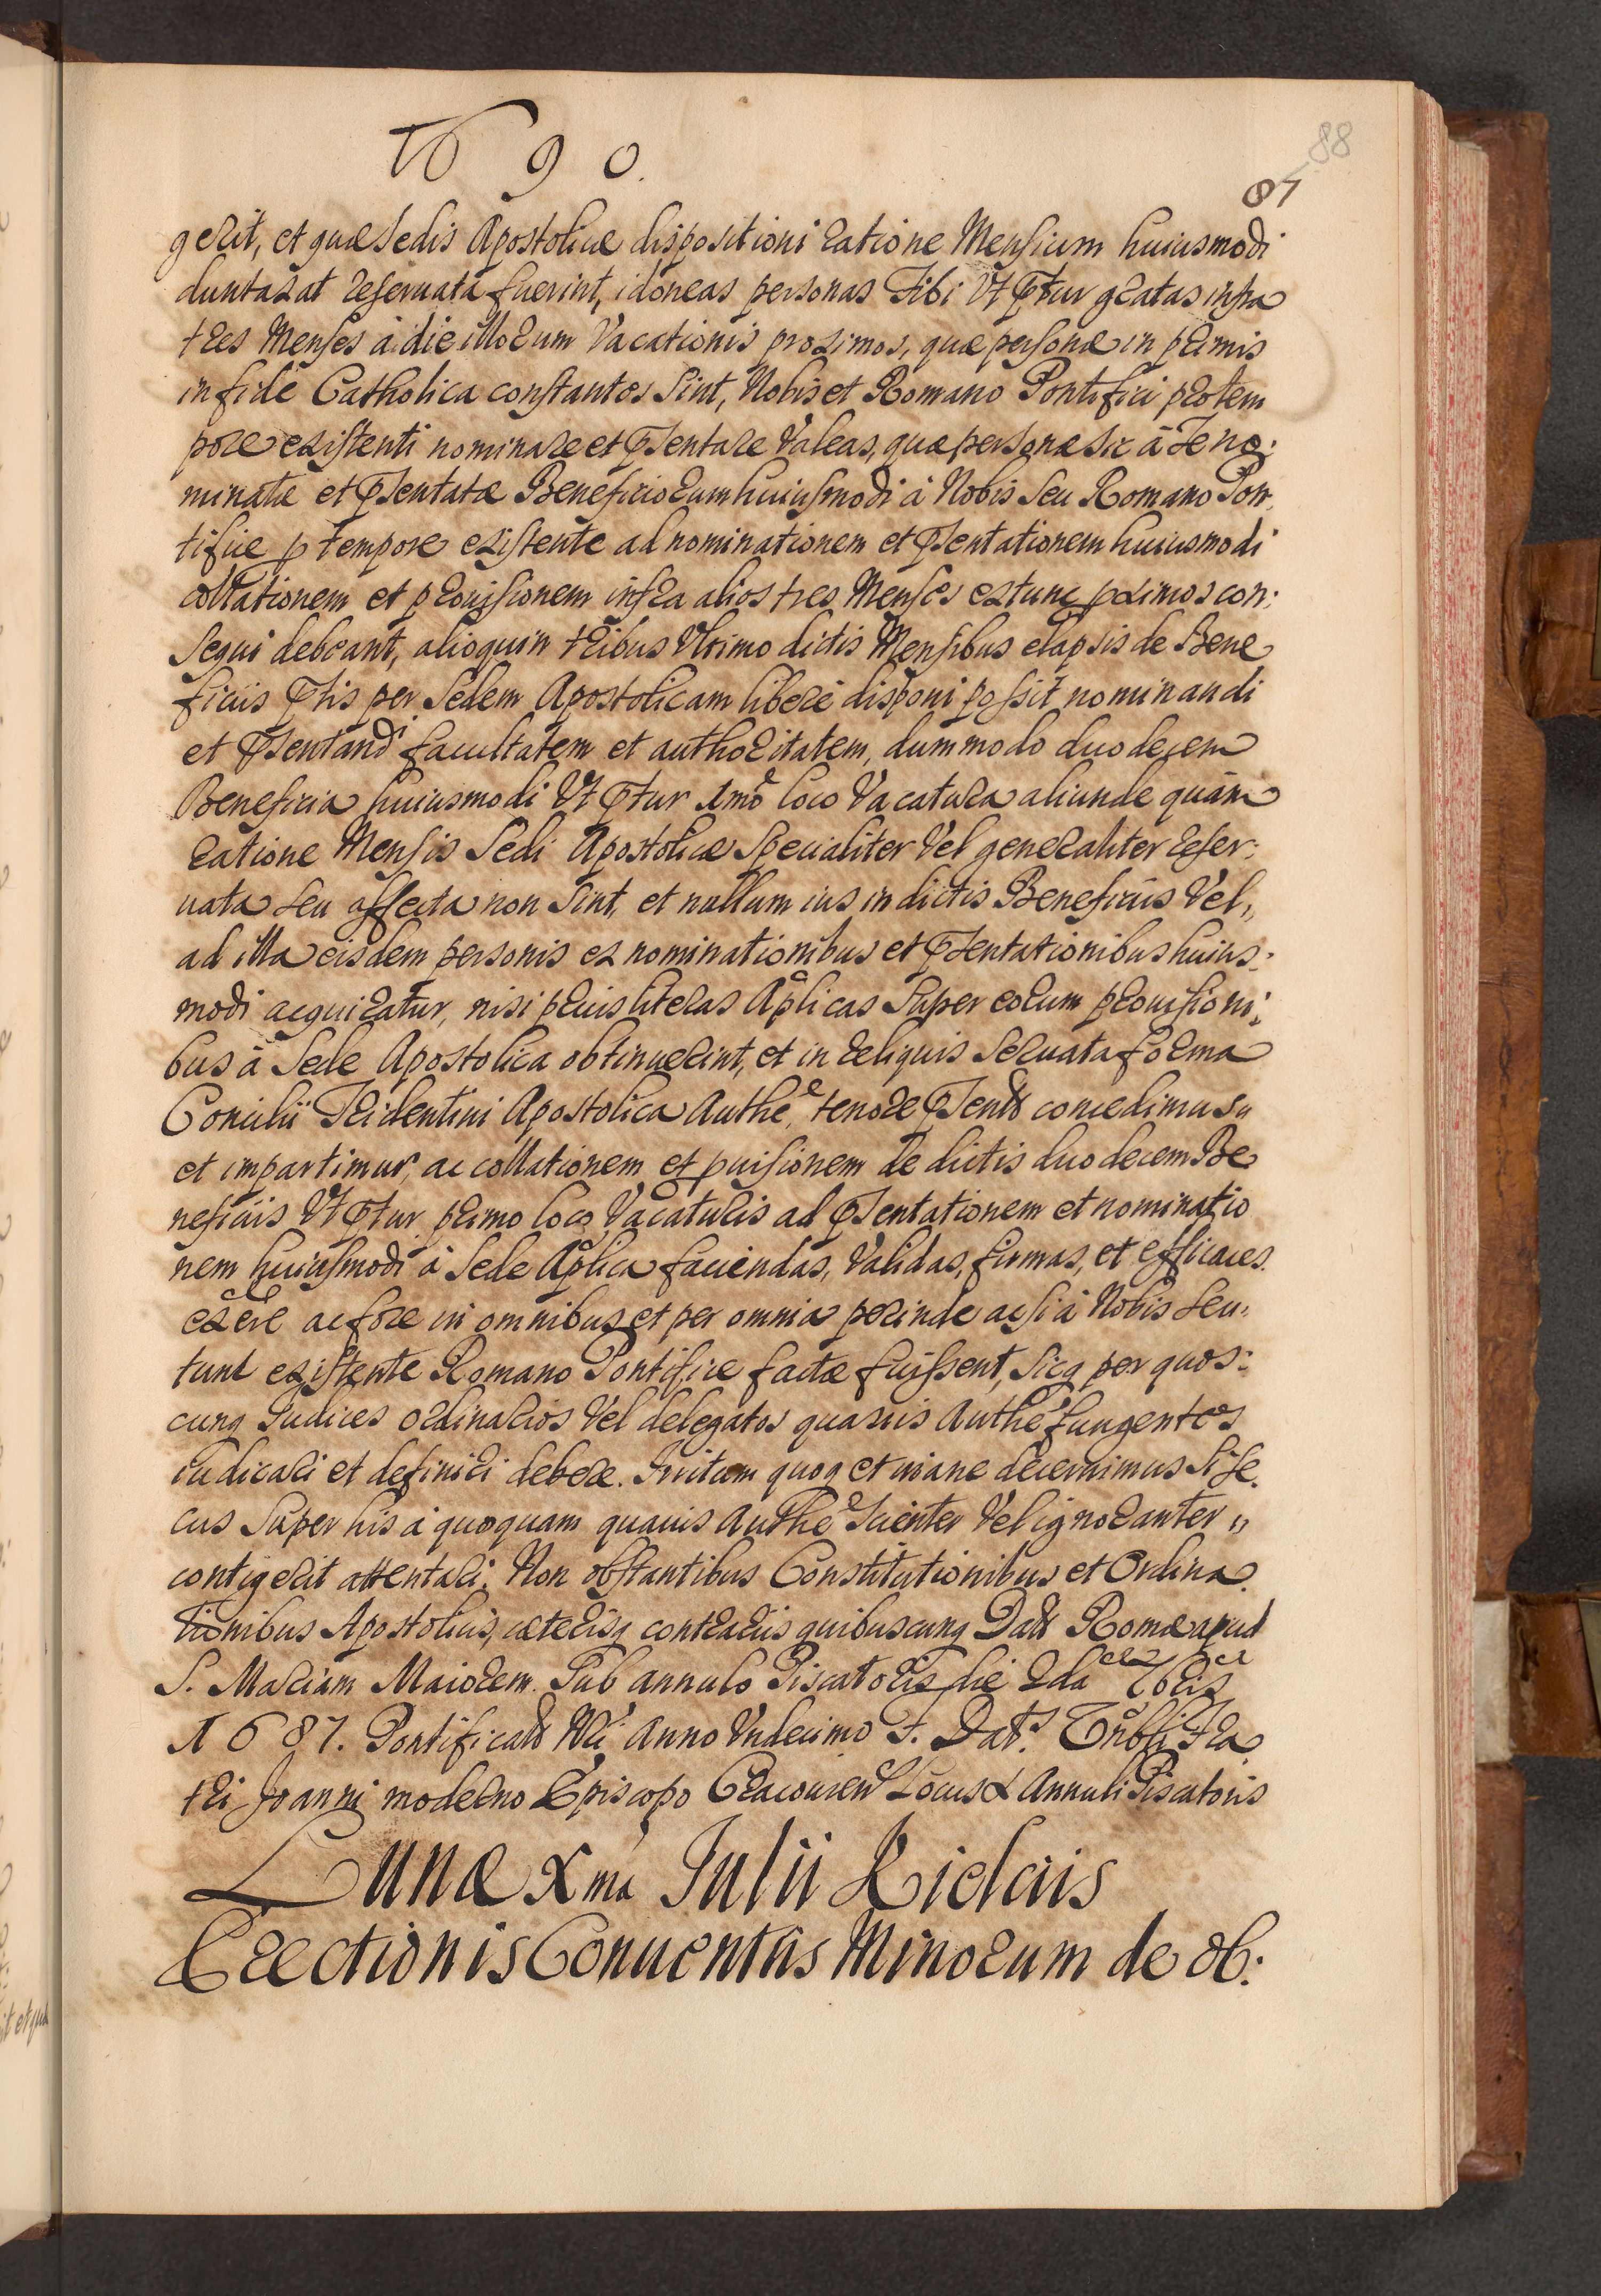 1690.
88
87
gerit, et quæ Sedis Apostolicæ dispositioni ratione Mensium huiusmodi
duntaxat reseruata fuerint, idoneas personas Tibi Vt Pftur gratas infra
tres Menses à die illorum Vacationis proximos, quæ personæ in primis
in fide Catholica constantes Sint, Nobis et Romano Pontifici pro tem
pore existenti nominare et Pſentare Valeas, quæ personæ sic à Te no:
minatæ et Pſentatæ Beneficiorum huiusmodi à Nobis Seu Romano Pon:
tifice p tempore existente ad nominationem et Pſentationem huiusmodi
collationem et prouisionem infra alios tres Menses extunc pximos con:
sequi debeant, alioquin tribus Vltimo dictis Mensibus elapsis de Bene
ficiis Pftis per Sedem Apostolicam liberè disponi possit nominandi
et Pſentandi facultatem et authoritatem, dummodo duodecem
Beneficia huiusmodi Vt Pftur 1mo loco Vacatura aliunde quàm
ratione Mensis Sedi Apostolicæ Specialiter Vel generaliter reser:
uata seu affecta non Sint, et nullum ius in dictis Beneficiis Vel,,
ad illa eisdem personis ex nominationibus et Pſentationibus huius:
modi acquiratur, nisi prius literas Aplicas Super eorum prouisioni:
bus à Sede Apostolica obtinuerint, et in reliquis Seruata forma
Concilii Tridentini Apostolica Authe, tenore Pſents concedimus,,
et impartimur, ac collationem et puisionem de dictis duodecem Be
neficiis Vt Pftur primo loco Vacaturis ad Pſentationem et nominatio
nem huiusmodi à Sede Aplica faciendas, Validas, firmas, et efficaces.
exere ac fore in omnibus et per omnia perinde ac si à Nobis Seu:
tunc existente Romano Pontifice factæ fuissent, Sicq per quos:
cunq Judices ordinarios Vel delegatos quauis Authe fungentes
iudicari et definiri debere. Irritum quoq et inane decernimus Si se.
cus Super his à quoquam quauis Authe Scienter Vel ignoranter,,
contigerit attentari. Non obstantibus Constitutionibus et Ordina.
tionibus Apostolicis, cæterisq contrariis quibuscunq Dats Romæ apud
S. Mariam Maiorem. Sub annulo Piscatoris die 2da
1687. Pontificats Nri Anno Vndecimo
tri Joanni moderno Episcopo Cracouien Locus Annuli Piscatoris
Lunæ Xma Julii Kielciis
Erectionis Conuentûs Minorum de ob:
it et quæ